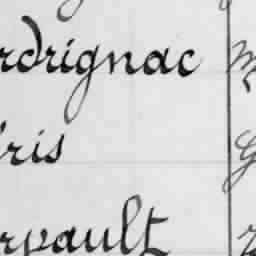 rdrignac
ris
rpault